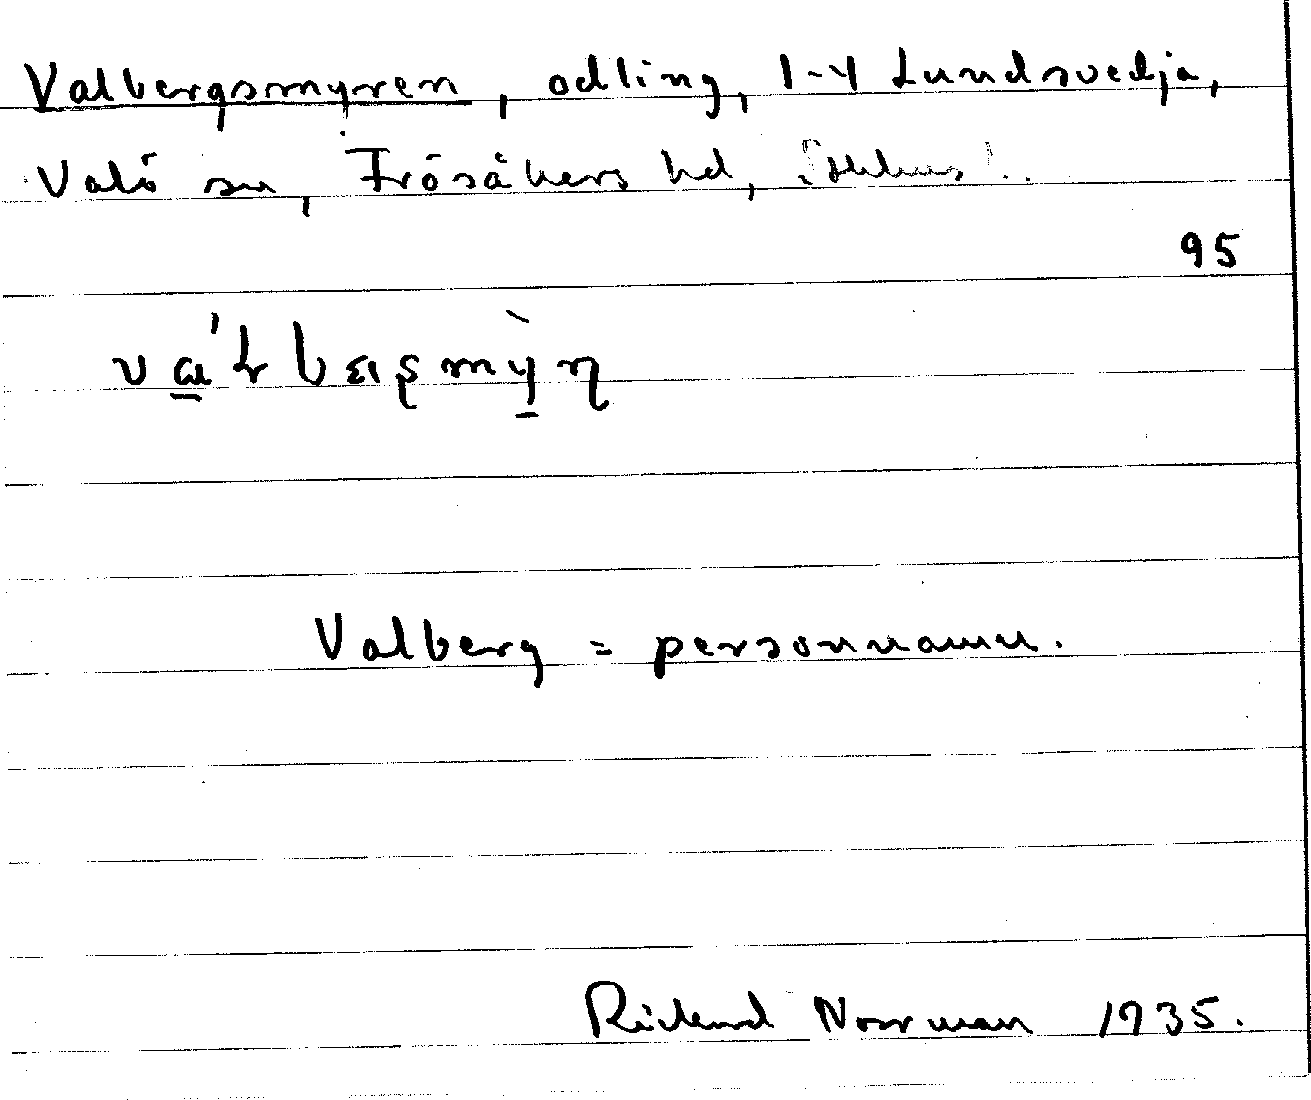 Valbergsmyren, odling, 1-4 Lundsvedja,
Valö sn, Frösåkers hd,
95
Valberg = personnamn.
Rickard Norrman 1935.